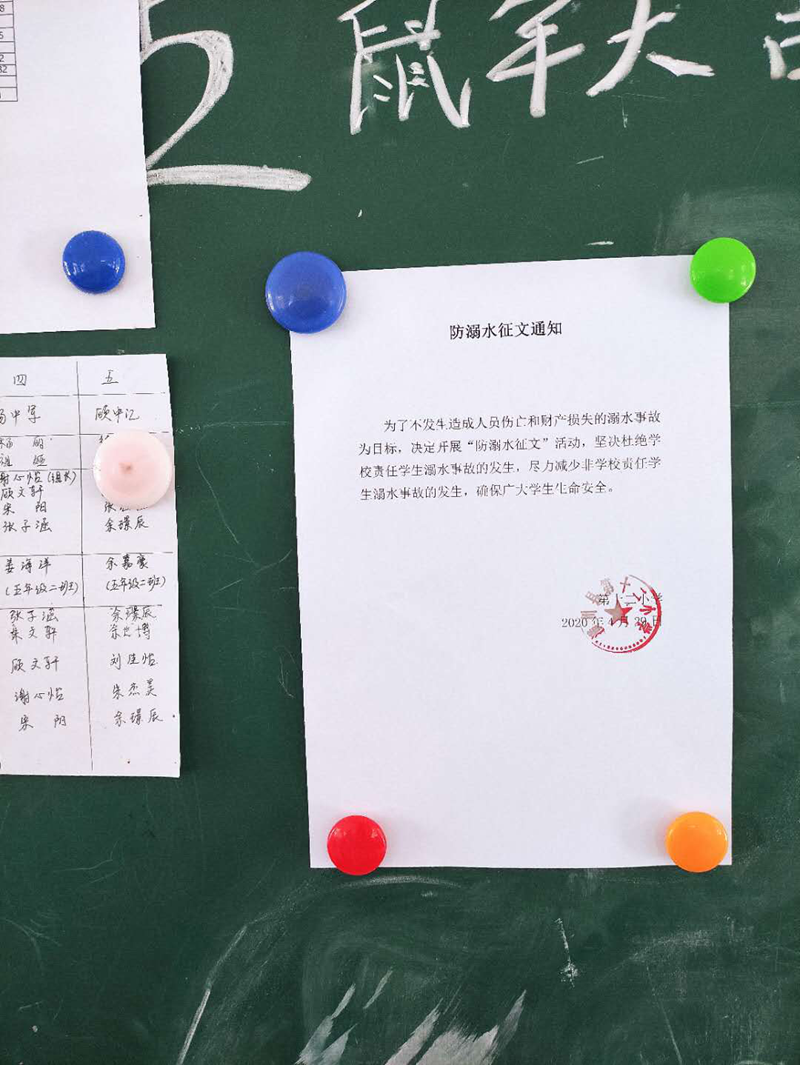 5 鼠年大吉
防溺水征文通知
为了不发生造成人员伤亡和财产损失的溺水事故
为目标，决定开展“防溺水征文”活动，坚决杜绝学
校责任学生溺水事故的发生，尽力减少非学校责任学
生溺水事故的发生，确保广大学生生命安全。
第十二小学
2020年4月30日
四 五
顾中汇
谢心怡(组长)
顾文轩
宋 阳
张子涵 余璟辰
姜海洋 余嘉豪
(五年级二班) (五年级二班)
张子涵 余璟辰
朱文轩
顾文轩 刘佳怡
谢心怡 朱杰昊
宋 阳 余璟辰